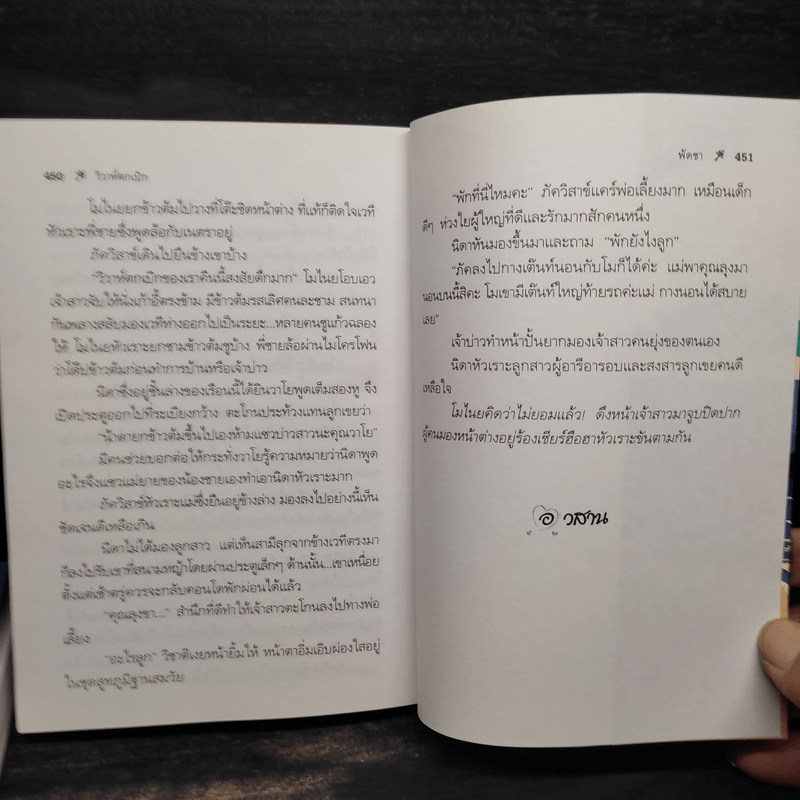 450 วิวาห์ตกเบิก
โมไนยยกข้าวต้มไปวางที่โต๊ะชิดหน้าต่าง ที่แท้ก็ติดใจเวที
หัวเราะพี่ชายซึ่งพูดล้อกับเนตราอยู่
ภัควิสาข์เดินไปยืนข้างเขาบ้าง
"วิวาห์ตกเบิกของเราคืนนี้สงสัยดึกมาก" โมไนยโอบเอว
เจ้าสาวจับให้นั่งเก้าอี้ตรงข้าม มีข้าวต้มรสเลิศคนละชาม สนทนา
กันพลางสลับมองเวทีห่างออกไปเป็นระยะ...หลายคนชูแก้วฉลอง
ให้ โมไนยหัวเราะยกชามข้าวต้มชูบ้าง พี่ชายล้อผ่านไมโครโฟน
ว่าโด๊ปข้าวต้มก่อนทำการบ้านหรือเจ้าบ่าว
นิดาซึ่งอยู่ชั้นล่างของเรือนนี้ได้ยินวาโยพูดเต็มสองหู จึง
เปิดประตูออกไปที่ระเบียงกว้าง ตะโกนประท้วงแทนลูกเขยว่า
"น้าดายกข้าวต้มขึ้นไปเองห้ามแซวบ่าวสาวนะคุณวาโย"
มีคนช่วยบอกต่อให้กระทั่งวาโยรู้ความหมายว่านิดาพูด
อะไรจึงแซวแม่ยายของน้องชายเองทำเอานิดาหัวเราะมาก
ภัควิสาข์หัวเราะแม่ซึ่งยืนอยู่ข้างล่าง มองลงไปอย่างนี้เห็น
ชัดเจนดีเหลือเกิน
นิดาไม่ได้มองลูกสาว แต่เห็นสามีลุกจากข้างเวทีตรงมา
ก็ลงไปรับเขาที่สนามหญ้าโดยผ่านประตูเล็กๆ ด้านนั้น...เขาเหนื่อย
ตั้งแต่เช้าตรู่ควรจะกลับคอนโดพักผ่อนได้แล้ว
"คุณลุงขา..." สำนึกที่ดีทำให้เจ้าสาวตะโกนลงไปทางพ่อ
เลี้ยง
"อะไรลูก" วิชาติเงยหน้ายิ้มให้ หน้าตาอิ่มเอิบผ่องใสอยู่
ในชุดสูทภูมิฐานสมวัย
พัดชา 451
"พักที่นี่ไหมคะ" ภัควิสาข์แคร์พ่อเลี้ยงมาก เหมือนเด็ก
ดีๆ ห่วงใยผู้ใหญ่ที่ดีและรักมากสักคนหนึ่ง
นิดาหันมองขึ้นมาและถาม "พักยังไงลูก"
"ภัคลงไปกางเต็นท์นอนกับโมก็ได้ค่ะ แม่พาคุณลุงมา
นอนบนนี้สิคะ โมเขามีเต็นท์ใหญ่ท้ายรถค่ะแม่ กางนอนได้สบาย
เลย"
เจ้าบ่าวทำหน้าปั้นยากมองเจ้าสาวคนยุ่งของตนเอง
นิดาหัวเราะลูกสาวผู้อารีอารอบและสงสารลูกเขยคนดี
เหลือใจ
โมไนยคิดว่าไม่ยอมแล้ว! ดึงหน้าเจ้าสาวมาจูบปิดปาก
ผู้คนมองหน้าต่างอยู่ร้องเชียร์ฮือฮาหัวเราะขันตามกัน
อวสาน